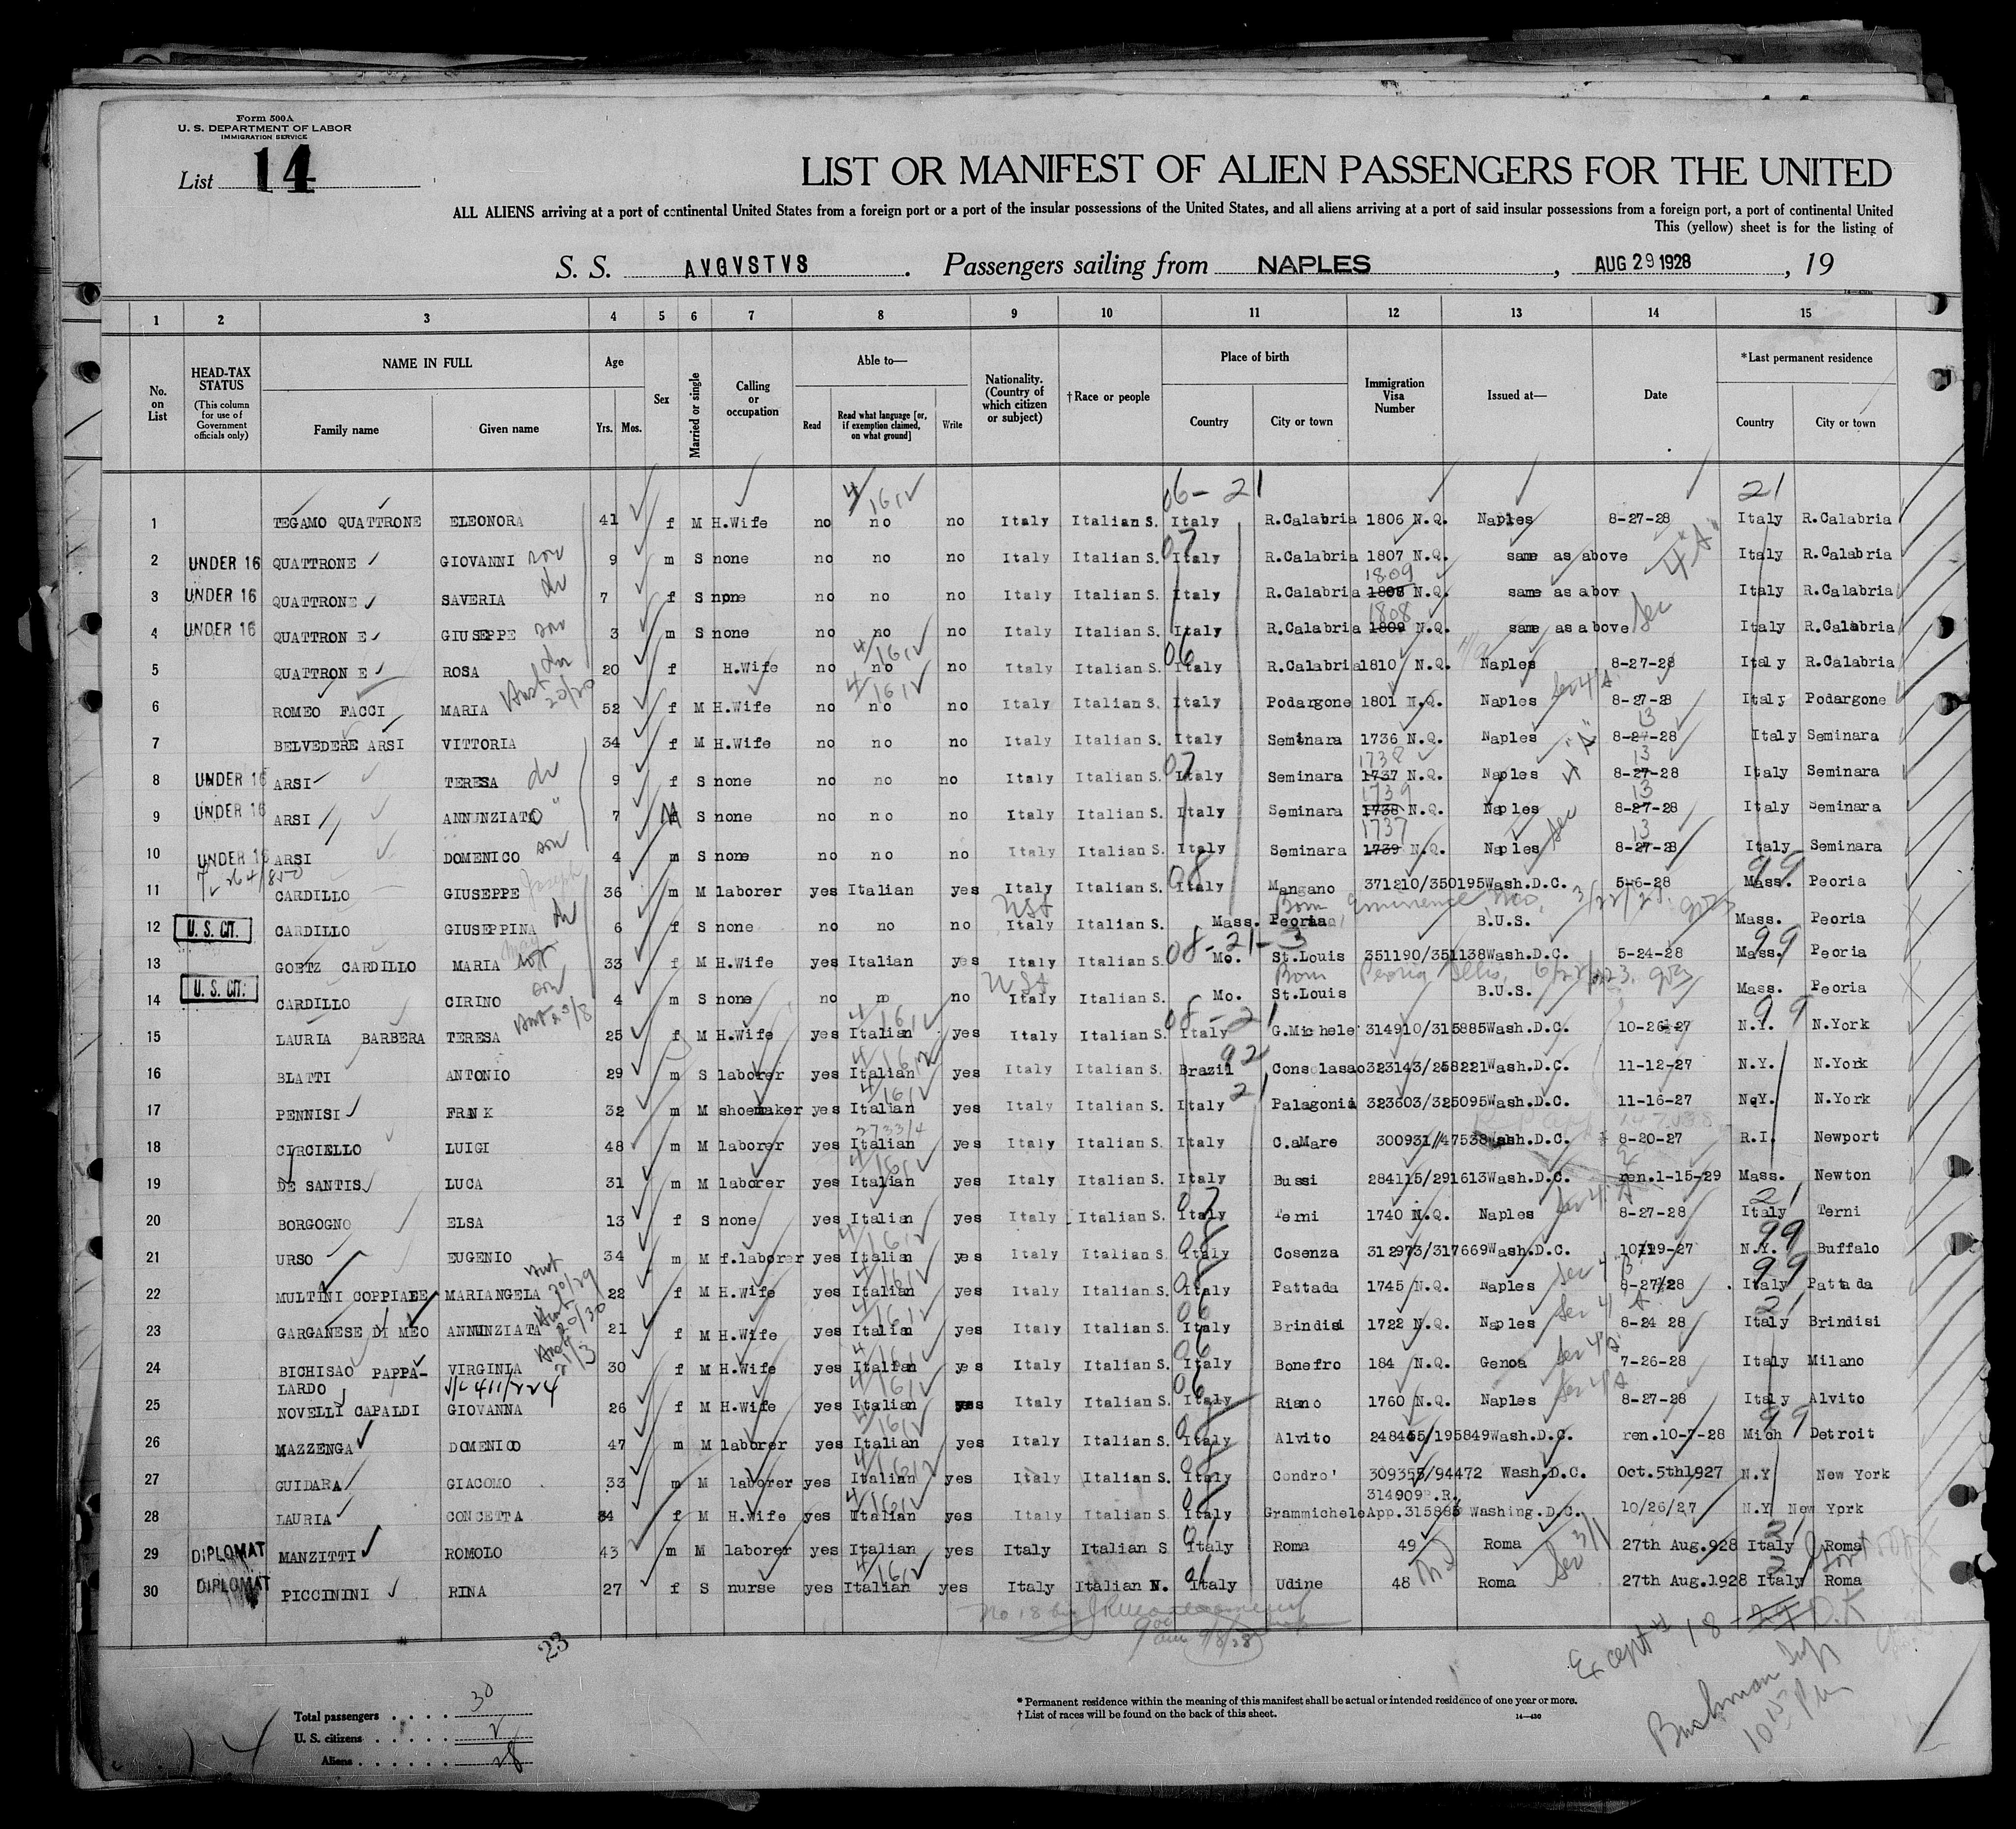 Form 500A
U. S. DEPARTMENT OF LABOR
IMMIGRATION SERVICE
List 14
LIST OR MANIFEST OF ALIEN PASSENGERS FOR THE UNITED
ALL ALIENS arriving at a port of continental United States from a foreign port or a port of the insular possessions of the United States, and all aliens arriving at a port of said insular possessions from a foreign port, a port of continental United
This (yellow) sheet is for the listing of
S. S. AVGVSTVS. Passengers sailing from NAPLES, AUG 29 1928, 19
1 2 3 4 5 6 7 8 9 10 11 12 13 14 15
No. on List
HEAD-TAX STATUS
(This column for use of Government officials only)
NAME IN FULL
Family name
Given name
Age
Yrs. Mos.
Sex
Married or single
Calling or occupation
Able to—
Read
Read what language [or, if exemption claimed, on what ground]
Write
Nationality. (Country of which citizen or subject)
† Race or people
Place of birth
Country
City or town
Immigration Visa Number
Issued at—
Date
* Last permanent residence
Country
City or town
4/16/12 06- 21 21
1 TEGAMO QUATTRONE ELEONORA 41 f M H.Wife no no no Italy Italian S. Italy R.Calabria 1806 N.Q. Naples 8-27-28 Italy R.Calabria
2 UNDER 16 QUATTRONE GIOVANNI son 9 m S none no no no Italy Italian S. 07 Italy R.Calabria 1807 N.Q. same as above Italy R.Calabria
3 UNDER 16 QUATTRONE SAVERIA 7 f S none no no no Italy Italian S. Italy R.Calabria 1809 1808 N.Q. same as abov Italy R.Calabria
4 UNDER 16 QUATTRON E GIUSEPPE son 3 m S none no no no Italy Italian S. Italy R.Calabria 1808 1809 N.Q. same as above Italy R.Calabria
5 QUATTRON E ROSA 20 f H.Wife no no no Italy Italian S. 06 Italy R.Calabria 1810 N.Q. Naples 8-27-28 Italy R.Calabria
6 ROMEO FACCI MARIA 52 f M H.Wife no no no Italy Italian S. Italy Podargone 1801 N.Q. Naples 8-27-28 Italy Podargone
7 BELVEDERE ARSI VITTORIA 34 f M H.Wife no no no Italy Italian S. Italy Seminara 1736 N.Q. Naples 13 8-27-28 Italy Seminara
8 UNDER 16 ARSI TERESA 9 f S none no no no Italy Italian S. 07 Italy Seminara 1738 1737 N.Q. Naples 13 8-27-28 Italy Seminara
9 UNDER 16 ARSI ANNUNZIATO 7 M S none no no no Italy Italian S. Italy Seminara 1739 1738 N.Q. Naples 13 8-27-28 Italy Seminara
10 UNDER 16 ARSI DOMENICO son 4 m S none no no no Italy Italian S. Italy Seminara 1737 1739 N.Q. Naples 13 8-27-28 Italy Seminara
11 CARDILLO GIUSEPPE Joseph 36 m M laborer yes Italian yes Italy Italian S. 08 Italy Mangano 371210/350195 Wash.D.C. 5-6-28 99 Mass. Peoria
12 U. S. CIT. CARDILLO GIUSEPPINA 6 f S none no no no Italy Italian S. Mass. Peoria B.U.S. Mass. Peoria
13 GOETZ CARDILLO MARIA 33 f M H.Wife yes Italian yes Italy Italian S. 08-21-3 Mo. St.Louis 351190/351138 Wash.D.C. 5-24-28 99 Mass. Peoria
14 U. S. CIT. CARDILLO CIRINO son 4 m S none no no no Italy Italian S. Mo. St.Louis B.U.S. Mass. Peoria
15 LAURIA BARBERA TERESA 25 f M H.Wife yes Italian yes Italy Italian S. 08-21 Italy G.Michele 314910/315885 Wash.D.C. 10-26-27 99 N.Y. N.York
16 BLATTI ANTONIO 29 m S laborer yes Italian yes Italy Italian S. 92 Brazil Consolasao 323143/258221 Wash.D.C. 11-12-27 N.Y. N.York
17 PENNISI FRANK 32 m M shoemaker yes Italian yes Italy Italian S. 21 Italy Palagonia 323603/325095 Wash.D.C. 11-16-27 N.Y. N.York
18 CIRCIELLO LUIGI 48 m M laborer yes Italian yes Italy Italian S. Italy C.aMare 300931/47538 Wash.D.C. 8-20-27 R.I. Newport
19 DE SANTIS LUCA 31 m M laborer yes Italian yes Italy Italian S. Italy Bussi 284115/291613 Wash.D.C. ren.1-15-29 Mass. Newton
20 BORGOGNO ELSA 13 f S none yes Italian yes Italy Italian S. 07 Italy Terni 1740 N.Q. Naples 8-27-28 21 Italy Terni
21 URSO EUGENIO 34 m M f.laborer yes Italian yes Italy Italian S. 08 Italy Cosenza 312973/317669 Wash.D.C. 10/19-27 99 N.Y. Buffalo
22 MULTINI COPPIAEE MARIANGELA 22 f M H.Wife yes Italian yes Italy Italian S. Italy Pattada 1745 N.Q. Naples 8-27-28 Italy Pattada
23 GARGANESE DI MEO ANNUNZIATA 21 f M H.Wife yes Italian yes Italy Italian S. 06 Italy Brindisi 1722 N.Q. Naples 8-24 28 21 Italy Brindisi
24 BICHISAO PAPPA- VIRGINIA 30 f M H.Wife yes Italian yes Italy Italian S. 06 Italy Bonefro 184 N.Q. Genoa 7-26-28 Italy Milano
LARDO
25 NOVELLI CAPALDI GIOVANNA 26 f M H.Wife yes Italian yes Italy Italian S. 06 Italy Riano 1760 N.Q. Naples 8-27-28 Italy Alvito
26 MAZZENGA DOMENICO 47 m M laborer yes Italian yes Italy Italian S. 08 Italy Alvito 248465/195849 Wash.D.C. ren.10-7-28 99 Mich Detroit
27 GUIDARA GIACOMO 33 m M laborer yes Italian yes Italy Italian S. 08 Italy Condro' 309355/94472 Wash.D.C. Oct.5th1927 N.Y New York
314909P.R.
28 LAURIA CONCETTA 34 f M H.Wife yes Italian yes Italy Italian S. Italy Grammichele App.315885 Washing.D.C. 10/26/27 N.Y New York
29 DIPLOMAT MANZITTI ROMOLO 43 m M laborer yes Italian yes Italy Italian S Italy Roma 49 Roma 27th Aug.928 Italy Roma
30 DIPLOMAT PICCININI RINA 27 f S nurse yes Italian yes Italy Italian N. Italy Udine 48 Roma 27th Aug.1928 Italy Roma
23
Except # 18 - 29 O.K
Bushman Insp
10 15 Pm
* Permanent residence within the meaning of this manifest shall be actual or intended residence of one year or more.
† List of races will be found on the back of this sheet.
14—430
Total passengers . . . . 30
U. S. citizens . . . . . 2
Aliens . . . . . . 28